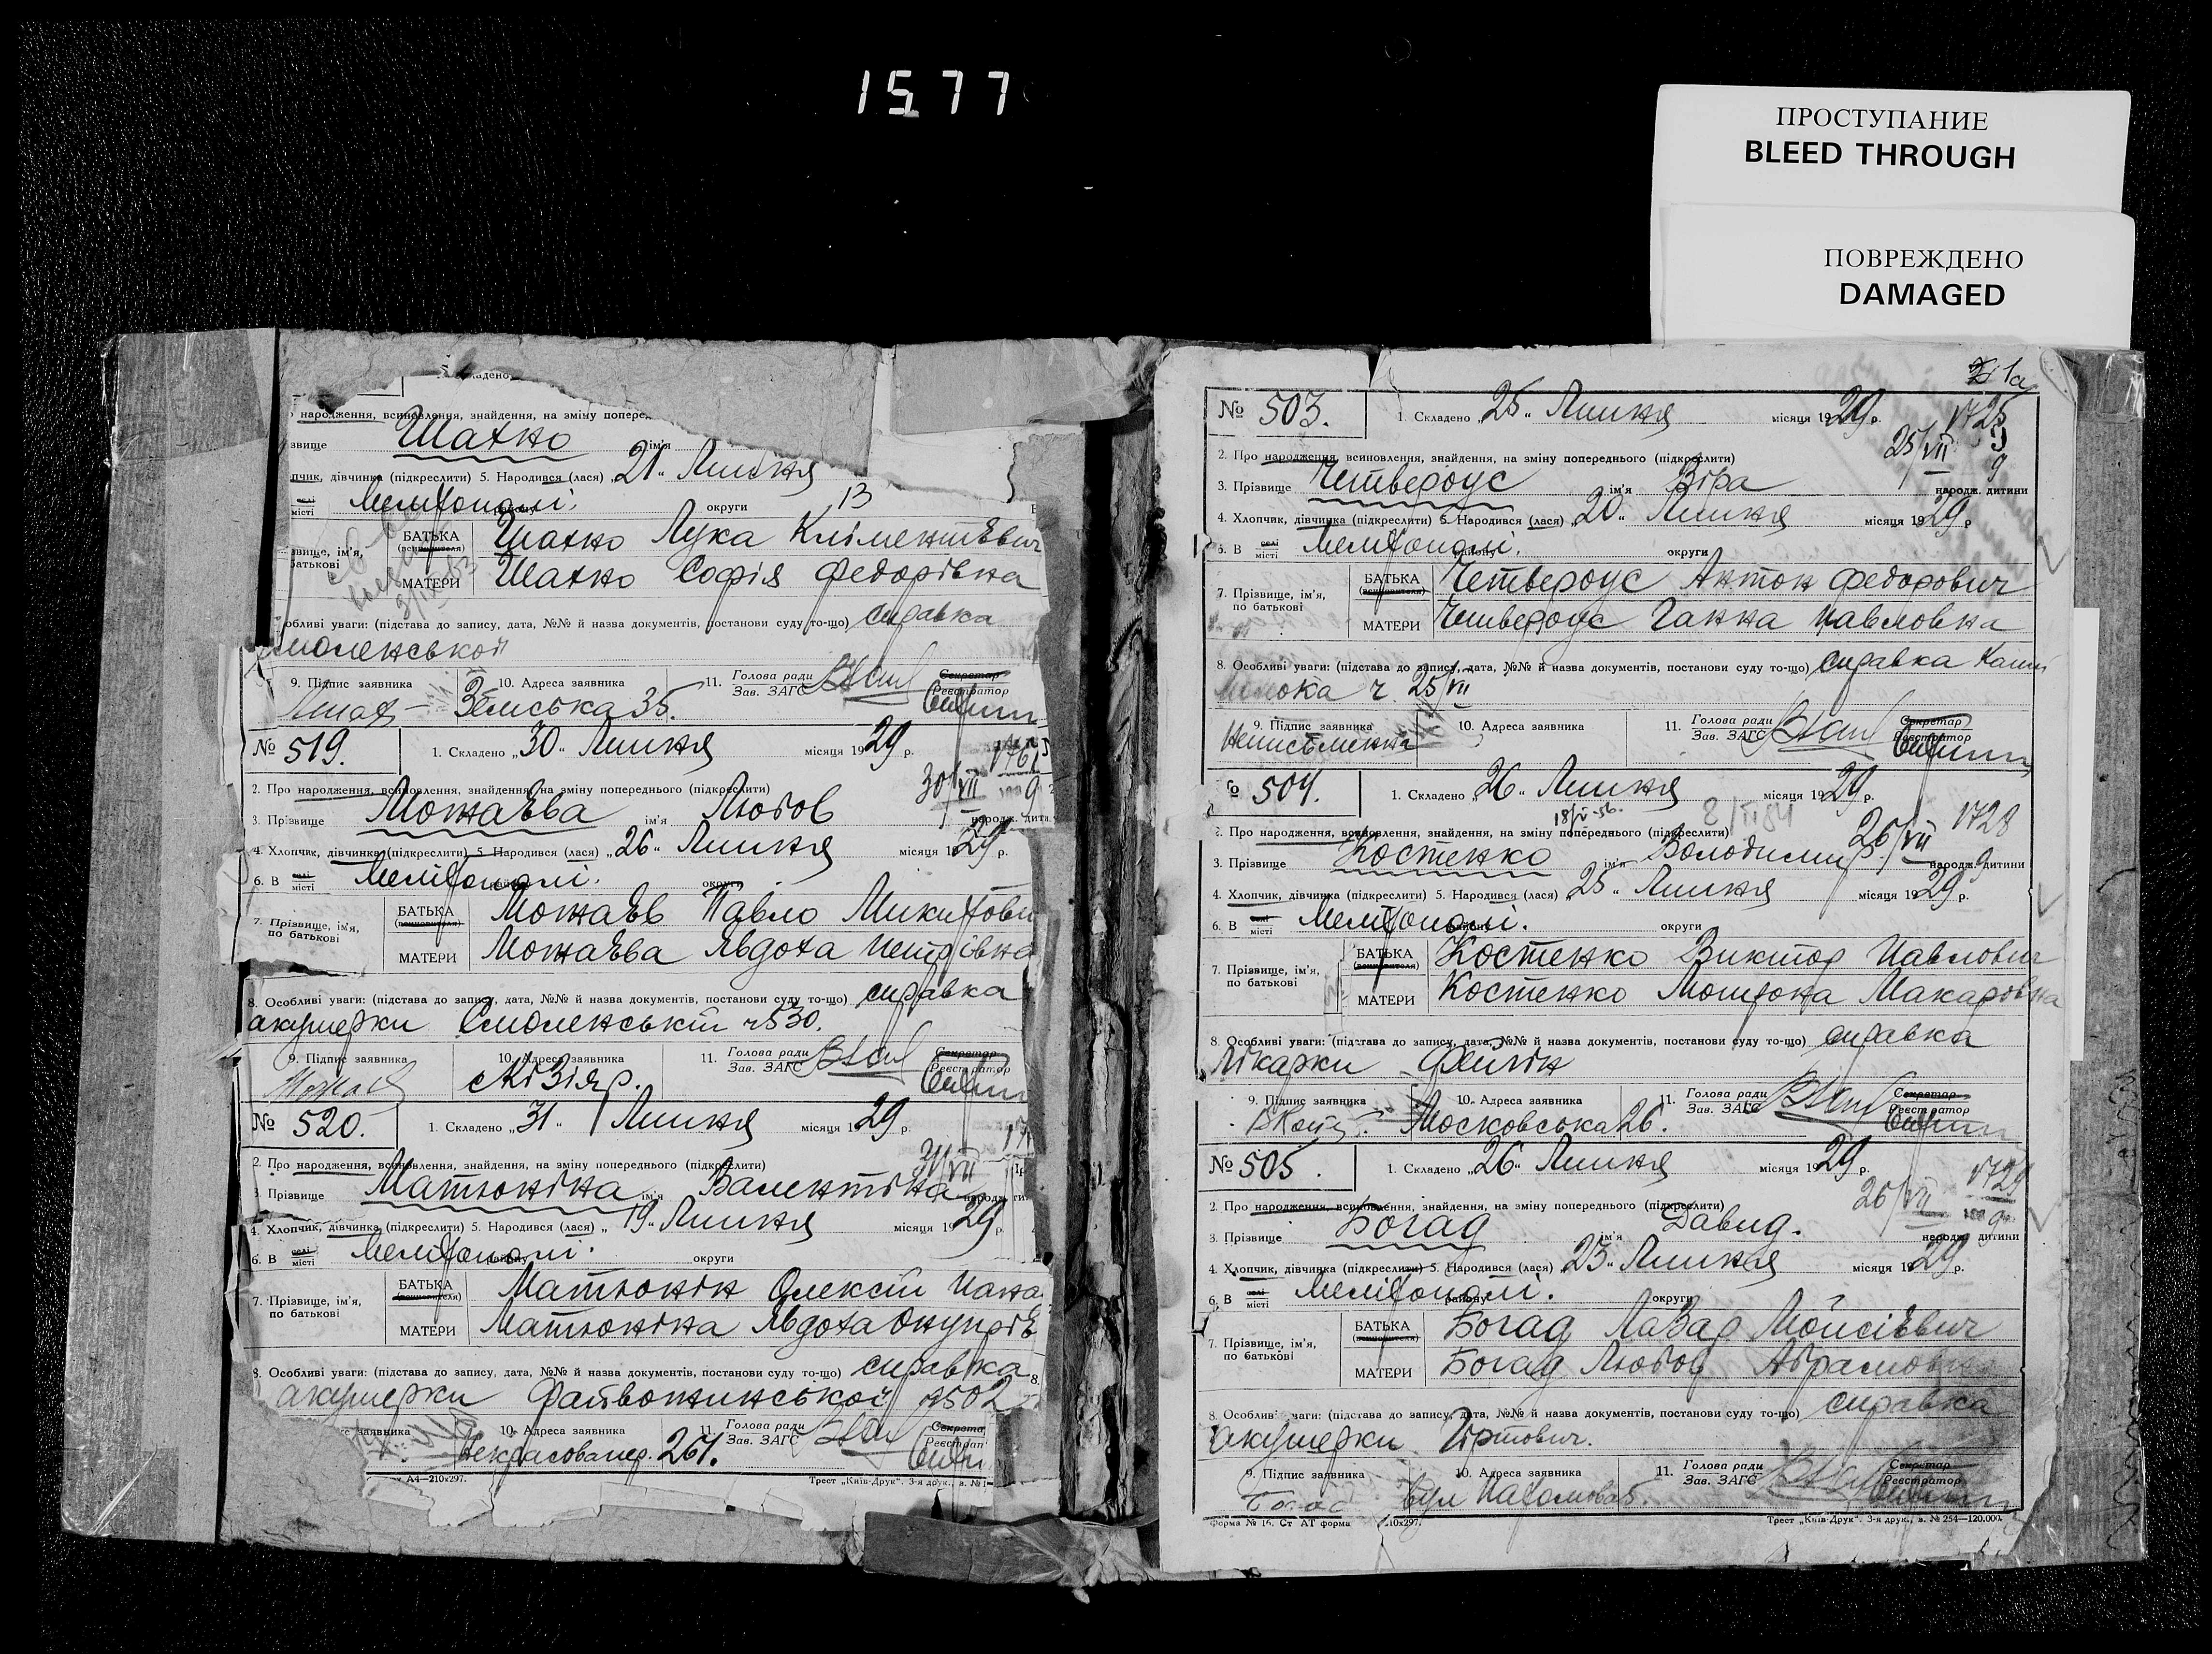 1577
ПРОСТУПАНИЕ
BLEED THROUGH
ПОВРЕЖДЕНО
DAMAGED
народження, всиновлення, знайдення, на зміну попере
звище Шахно ім'я
пчик, дівчинка (підкреслити) 5. Народився (лася) „21“ Липня
селі місті Мелітополі. району округи
13
звище, ім'я, батькові
БАТЬКА (всиновителя) Шахно Лука Кліментьевич
МАТЕРИ Шахно Софія Федорівна
обливі уваги: (підстава до запису, дата, №№ й назва документів, постанови суду то-що) справка
моленської
9. Підпис заявника 10. Адреса заявника 11. Голова ради Зав. ЗАГС Секретар Реєстратор
Земська 35.
№ 519. 1. Складено „30“ Липня місяця 1929 р.
30/VII
2. Про народження, всиновлення, знайдення, на зміну попереднього (підкреслити) 9
3. Прізвище Можаєва ім'я Любов народж. дити
4. Хлопчик, дівчинка (підкреслити) 5. Народився (лася) „26“ Липня місяця 1929 р.
6. В селі місті Мелітополі. району округи
7. Прізвище, ім'я, по батькові
БАТЬКА (всиновителя) Можаєв Павло Микитови
МАТЕРИ Можаєва Явдоха Петрівна
8. Особливі уваги: (підстава до запису, дата, №№ й назва документів, постанови суду то-що) справка
акушерки Смоленської ч 530.
9. Підпис заявника 10. Адреса заявника 11. Голова ради Зав. ЗАГС Секретар Реєстратор
Кізіяр.
№ 520. 1. Складено „31“ Липня місяця 1929 р.
31/VII
2. Про народження, всиновлення, знайдення, на зміну попереднього (підкреслити)
3. Прізвище Матюніна ім'я Валентіна народж
4. Хлопчик, дівчинка (підкреслити) 5. Народився (лася) „19“ Липня місяця 1929 р.
6. В селі місті Мелітополі. району округи
7. Прізвище, ім'я, по батькові
БАТЬКА (всиновителя) Матюнін Олексій Пана
МАТЕРИ Матюніна Явдоха Онуприє
8. Особливі уваги: (підстава до запису, дата, №№ й назва документів, постанови суду то-що) справка
акушерки ч 502
заявника 10. Адреса заявника 11. Голова ради Зав. ЗАГС Секрета Реєстрат
Некрасова пер. 261.
А4—210х297. Трест „Київ-Друк“. 3-я друк., в. №
1а
№ 503. 1. Складено „25“ Липня місяця 1929 р. 1725
25/VII 9
2. Про народження, всиновлення, знайдення, на зміну попереднього (підкреслити) 9
3. Прізвище Четвероус ім'я Віра народж. дитини
4. Хлопчик, дівчинка (підкреслити) 5. Народився (лася) „20“ Липня місяця 1929 р
6. В селі місті Мелітополі. району округи
7. Прізвище, ім'я, по батькові
БАТЬКА (всиновителя) Четвероус Антон Федорович
МАТЕРИ Четвероус Ганна Павловна
8. Особливі уваги: (підстава до запису, дата, №№ й назва документів, постанови суду то-що) справка
ч 25/VII
9. Підпис заявника 10. Адреса заявника 11. Голова ради Зав. ЗАГС Секретар Реєстратор
Неписьменна
№ 504. 1. Складено „26“ Липня місяця 1929 р.
26/VII 1728
2. Про народження, всиновлення, знайдення, на зміну попереднього (підкреслити)
3. Прізвище Костенко ім'я Володимир. народж. дитини 9
4. Хлопчик, дівчинка (підкреслити) 5. Народився (лася) „25“ Липня місяця 1929 р.
6. В селі місті Мелітополі. району округи
7. Прізвище, ім'я, по батькові
БАТЬКА (всиновителя) Костенко Виктор Павлович
МАТЕРИ Костенко Мотрона Макаровна
8. Особливі уваги: (підстава до запису, дата, №№ й назва документів, постанови суду то-що) справка
лікарки
9. Підпис заявника 10. Адреса заявника 11. Голова ради Зав. ЗАГС Секретар Реєстратор
Московська 26.
№ 505. 1. Складено „26“ Липня місяця 1929 р.
26/VII 1729
2. Про народження, всиновлення, знайдення, на зміну попереднього (підкреслити) 9
3. Прізвище Богад ім'я Давид. народж дитини
4. Хлопчик, дівчинка (підкреслити) 5. Народився (лася) „23“ Липня місяця 1929 р.
6. В селі місті Мелітополі. району округи
7. Прізвище, ім'я, по батькові
БАТЬКА (всиновителя) Богад Лазар Мойсієвич
МАТЕРИ Богад Любов Абрамовна
8. Особливі уваги: (підстава до запису, дата, №№ й назва документів, постанови суду то-що) справка
акушерки Гіртович.
9. Підпис заявника 10. Адреса заявника 11. Голова ради Зав. ЗАГС Секретар Реєстратор
Богад вул
Форма № 16. Ст АТ форма 210х297. Трест „Київ-Друк“. 3-я друк., в. № 254—120.000.